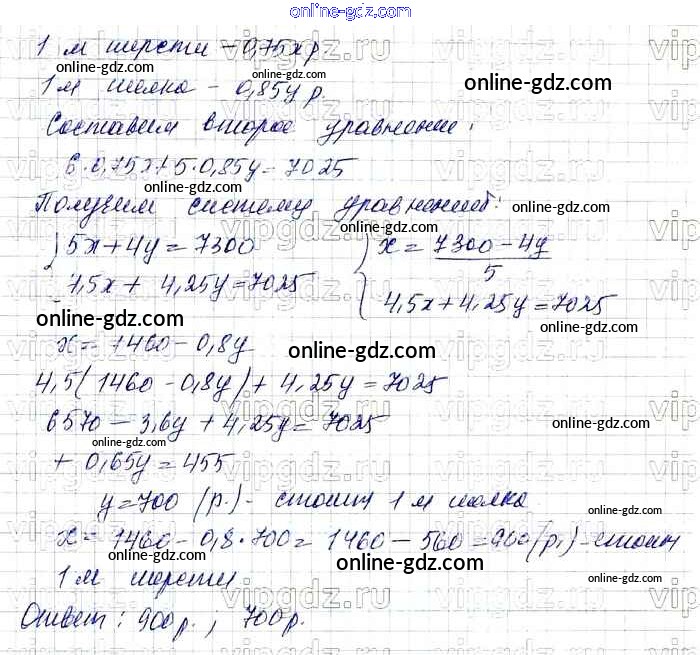 online-gdz.com
1 м шерсти – 0,75x р.
online-gdz.com
1 м шелка – 0,85y р.
online-gdz.com
Составим второе уравнение:
online-gdz.com
6·0,75x+5·0,85y=7025
online-gdz.com
Получим систему уравнений:
online-gdz.com
5x+4y=7300
x = 7300-4y / 5
online-gdz.com
4,5x + 4,25y=7025
4,5x+4,25y=7025
online-gdz.com
online-gdz.com
x = 1460-0,8y
online-gdz.com
4,5(1460-0,8y)+4,25y=7025
6570-3,6y+4,25y=7025
online-gdz.com
online-gdz.com
+ 0,65y=455
y=700 (р.) - стоит 1 м шелка
online-gdz.com
x = 1460-0,8·700= 1460-560=900(р.)-стоит
online-gdz.com
1 м шерсти
online-gdz.com
online-gdz.com
Ответ: 900р.; 700р.
online-gdz.com
online-gdz.com
vipgdz.ru